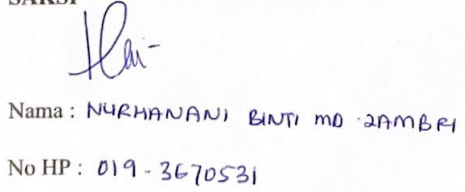 SAKSI
Nama : NURHANANI BINTI MD ZAMBRI
No HP : 019-3670531